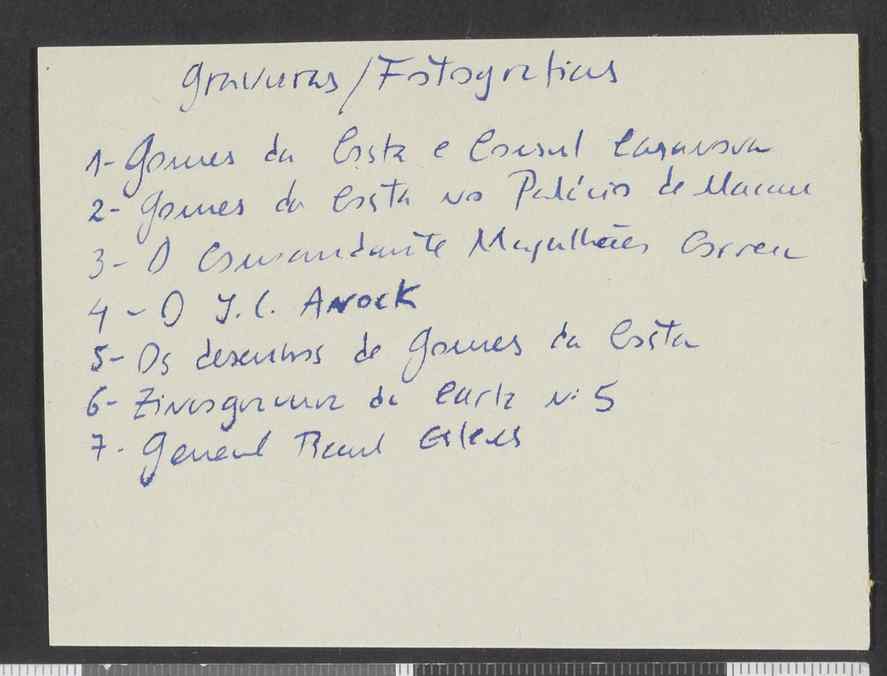 Gravuras/Fotografias
1- Gomes da Costa e Consul Casanova
2- Gomes da Costa no Palácio de Macau
3- O Comandante Magalhães Correa
4 - O J. C.
5- Os desenhos de Gomes da Costa
6- Zincogravura da Carta nº 5
7. General Raul Esteves